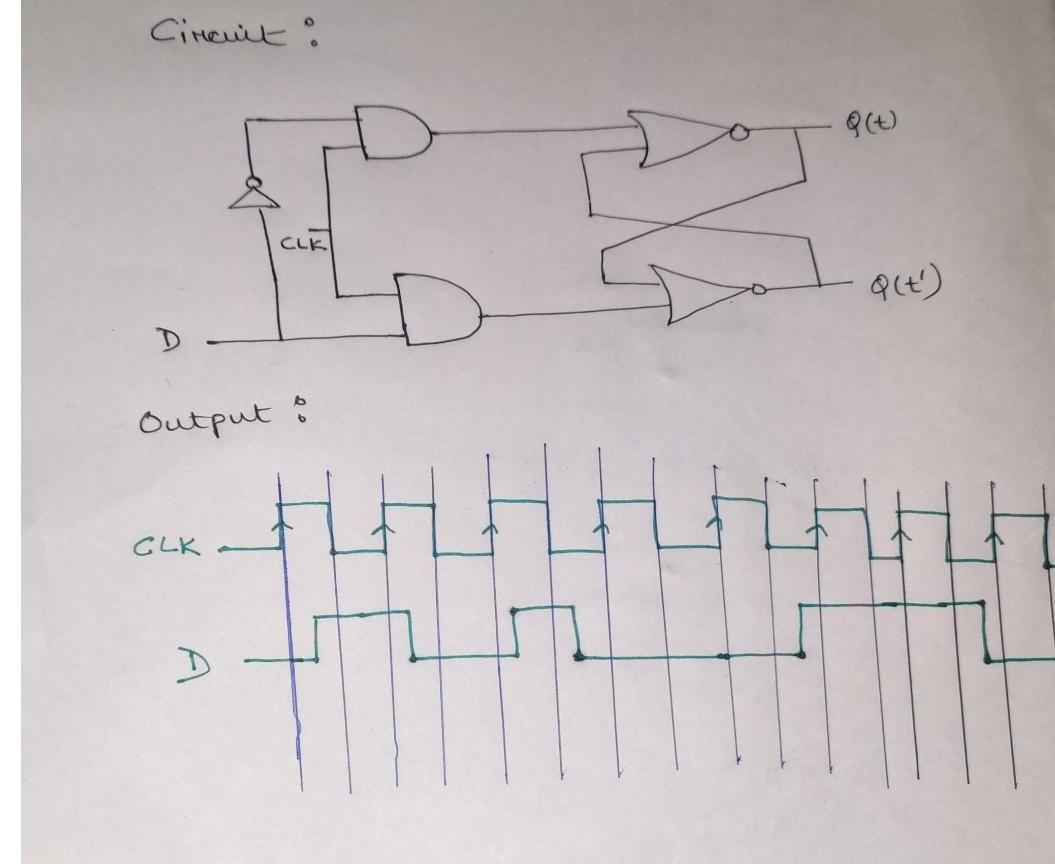 Circuit :
Q(t)
CLK
Q(t')
D
Output :
CLK
D